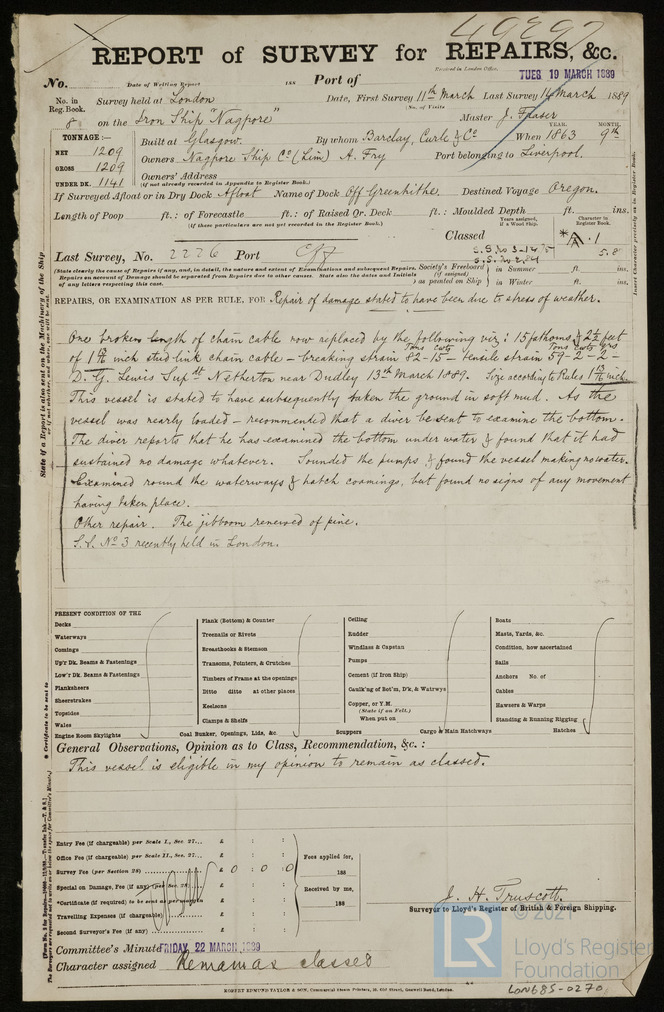 49897
REPORT of SURVEY for REPAIRS, &c.
Received in London Office,
TUES 19 MARCH 1889
No. Date of Writing Report 188 Port of
No. in Reg. Book. Survey held at London Date, First Survey 11th March Last Survey 14 March 1889
(No. of Visits
8 on the Iron Ship "Nagpore" Master J. Fraser
TONNAGE:— YEAR. MONTH.
NET 1209 Built at Glasgow. By whom Barclay, Curle & Co When 1863 9th
GROSS 1209 Owners Nagpore Ship Co (Lim) A. Fry Port belonging to Liverpool.
UNDER DK. 1141 Owners' Address
(if not already recorded in Appendix to Register Book.)
If Surveyed Afloat or in Dry Dock Afloat Name of Dock Off Greenhithe Destined Voyage Oregon.
Length of Poop ft.: of Forecastle ft.: of Raised Qr. Deck ft.: Moulded Depth ft. ins.
(if these particulars are not yet recorded in the Register Book.)
Years assigned, if a Wood Ship. Character in Register Book.
Classed A.1
5.8
Last Survey, No. 2226 Port
(State clearly the cause of Repairs if any, and, in detail, the nature and extent of Examinations and subsequent Repairs.
Repairs on account of Damage should be separated from Repairs due to other causes. State also the dates and Initials
of any letters respecting this case.
Society's Freeboard (if assigned) as painted on Ship in Summer ft. ins.
in Winter ft. ins.
REPAIRS, OR EXAMINATION AS PER RULE, FOR Repair of damage stated to have been due to stress of weather.
One broken length of chain cable now replaced by the following viz: 15 fathoms & 2½ feet
of 1 13/16 inch stud-link chain cable – breaking strain 82-15 – tensile strain 59-2-2-
D. G. Lewis Supt Netherton near Dudley 13th March 1889. Size according to Rules 1 13/16 inch.
This vessel is stated to have subsequently taken the ground in soft mud. As the
vessel was nearly loaded – recommended that a diver be sent to examine the bottom.
The diver reports that he has examined the bottom under water & found that it had
sustained no damage whatever. Sounded the pumps & found the vessel making no water.
Examined round the waterways & hatch coamings, but found no signs of any movement
having taken place.
Other repair. The jibboom renewed of pine.
S.S. No 3 recently held in London.
State if a Report is also sent on the Machinery of the Ship
Insert Character precisely as in Register Book.
PRESENT CONDITION OF THE
Decks
Waterways
Comings
Up'r Dk. Beams & Fastenings
Low'r Dk. Beams & Fastenings
Planksheers
Sheerstrakes
Topsides
Wales
Engine Room Skylights
Plank (Bottom) & Counter
Treenails or Rivets
Breasthooks & Stemson
Transoms, Pointers, & Crutches
Timbers of Frame at the openings
Ditto ditto at other places
Keelsons
Clamps & Shelfs
Coal Bunker, Openings, Lids, &c.
Ceiling
Rudder
Windlass & Capstan
Pumps
Cement (if Iron Ship)
Caulk'ng of Bot'm, D'k, & Watrwys
Copper, or Y.M.
(State if on Felt.)
When put on
Scuppers
Cargo & Main Hatchways
Boats
Masts, Yards, &c.
Condition, how ascertained
Sails
Anchors No. of
Cables
Hawsers & Warps
Standing & Running Rigging
Hatches
General Observations, Opinion as to Class, Recommendation, &c.:
This vessel is eligible in my opinion to remain as classed.
Entry Fee (if chargeable) per Scale I., Sec. 27... £ : :
Office Fee (if chargeable) per Scale II., Sec. 27... £ : :
Survey Fee (per Section 28) £ 0 : 0 : 0
Special on Damage, Fee (if any) (per Sec. 28) £ : :
*Certificate (if required) to be sent as per margin £ : :
Travelling Expenses (if chargeable) £ : :
Second Surveyor's Fee (if any) £ : :
Fees applied for,
188
Received by me,
188
J. H. Truscott.
Surveyor to Lloyd's Register of British & Foreign Shipping.
Committee's Minute FRIDAY 22 MARCH 1889
Character assigned Remain as classed
* Certificate to be sent to
ROBERT EDMUND TAYLOR & SON, Commercial Steam Printers, 19, Old Street, Goswell Road, London.
© 2021
LR
Lloyd's Register
Foundation
LON685-0270